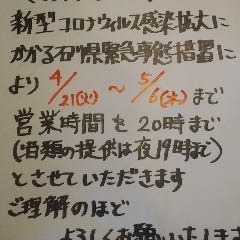 新型コロナウィルス感染拡大に
かかる石川県緊急事態措置に
より 4/21(火) ～ 5/6(水) まで
営業時間を20時まで
(酒類の提供は夜19時まで)
とさせていただきます
ご理解のほど
よろしくお願いいたします